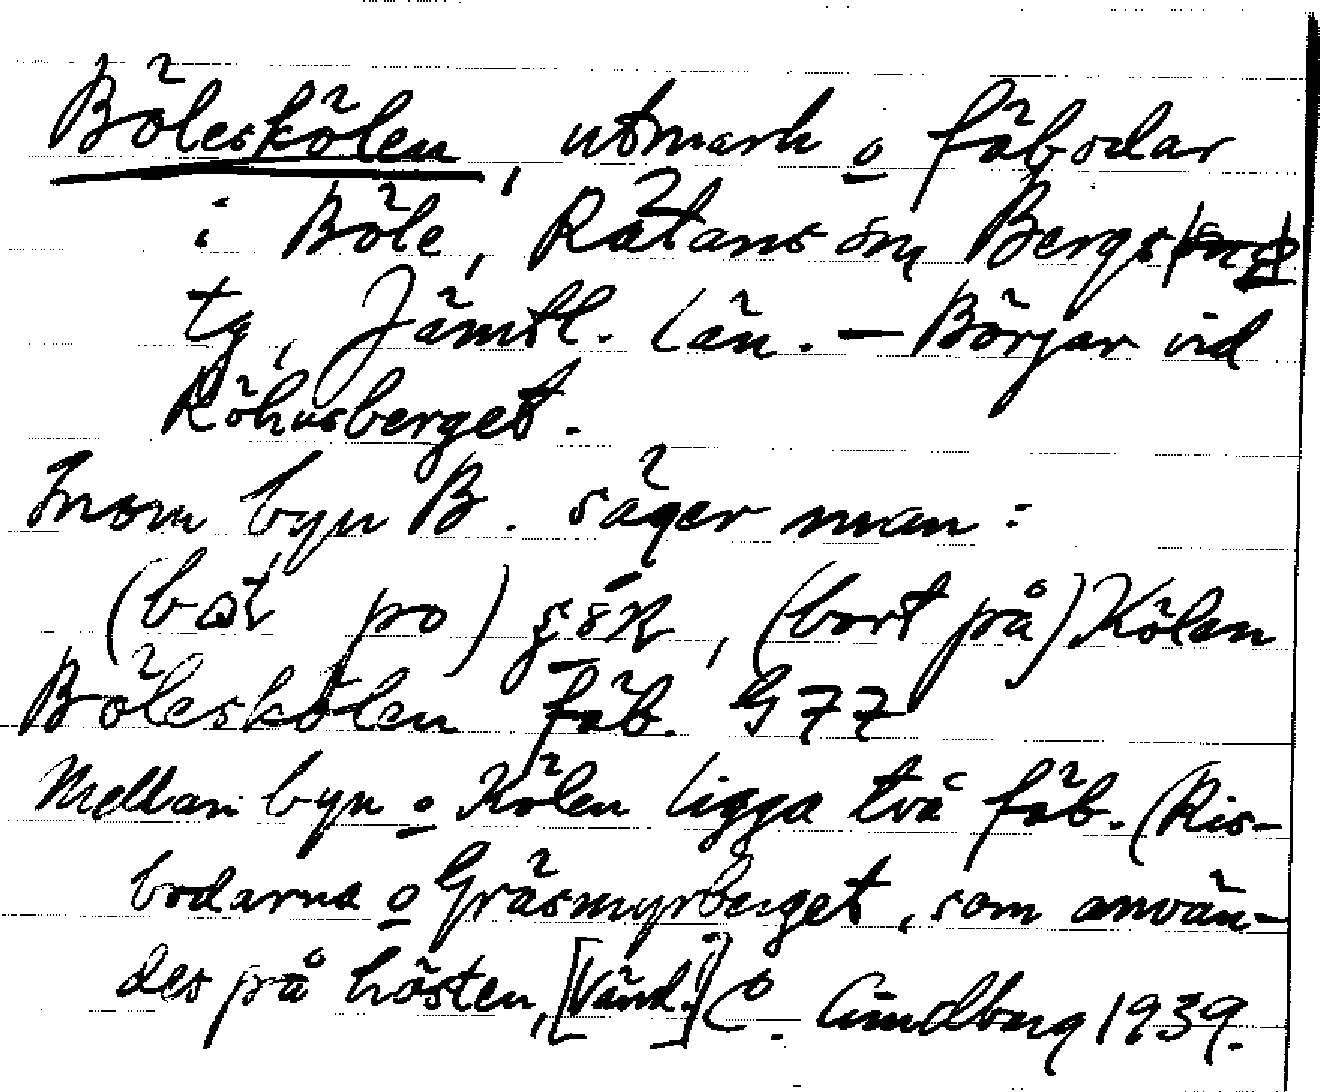 Böleskölen, utmark o fäbodar
i Böle, Rätans sn, Bergs
tg, Jämtl. län. – Börjar vid
Röhusberget.
Inom byn B. säger man:
(bat po) , (bort på) Kölen
Böleskölen fäb. G 77
Mellan byn o Kölen ligga två fäb. (Ris-
bodarna o Gräsmyrberget, som använ-
des på hösten, [Vänd!] O. Lundberg 1939.